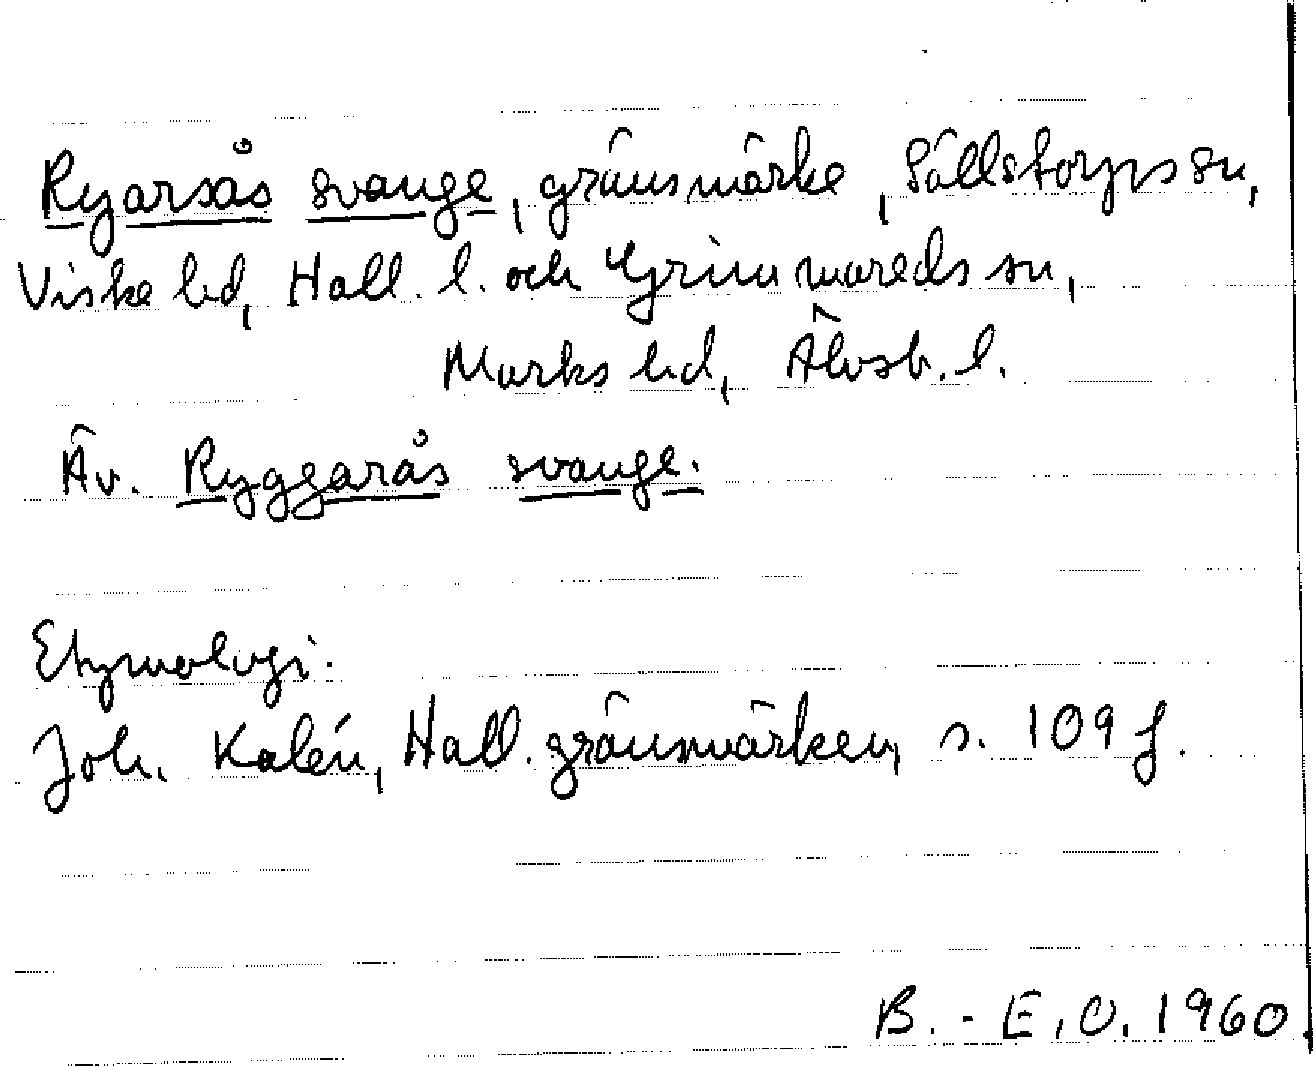 Ryarsås svange, gränsmärke, Sällstorps sn,
Viske hd, Hall. l. och Grimmareds sn,
Marks hd, Älvsb. l.
Äv. Ryggarås svange.
Etymologi.
Joh. Kalén, Hall. gränsmärken, s. 109 f.
B.-E.O. 1960.